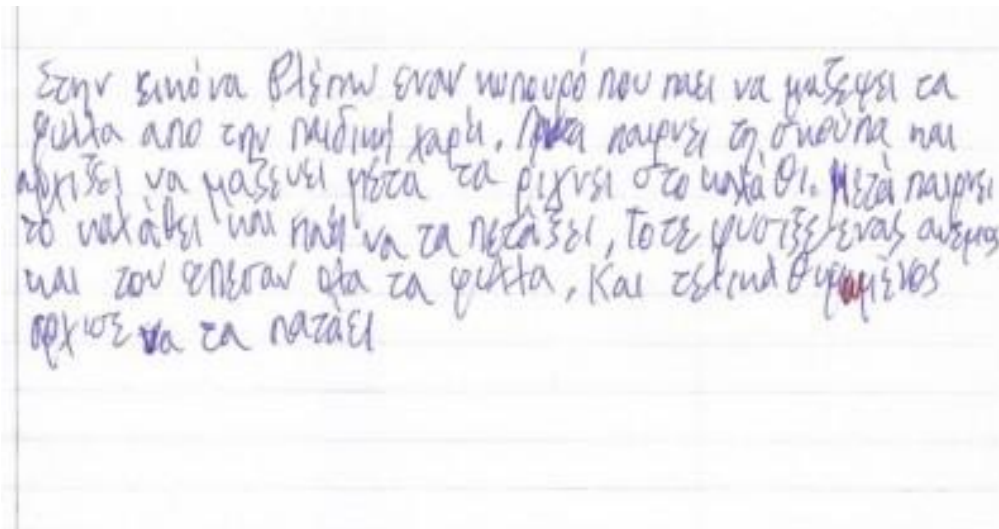 Στην εικόνα βλέπω εναν κηπουρό που παει να μαζεψει τα
φυλλα απο την παιδική χαρά. παιρνει τη σκούπα και
αρχιζει να μαζευει μέτα τα ριχνει στο καλάθι. Μετά παιρνει
το καλάθει και πάει να τα πετάξει, Τοτε φυσιξε ενας ανεμος
και του επεσαν ολα τα φυλλα, Και τελικα θυμωμένος
αρχισε να τα πατάει